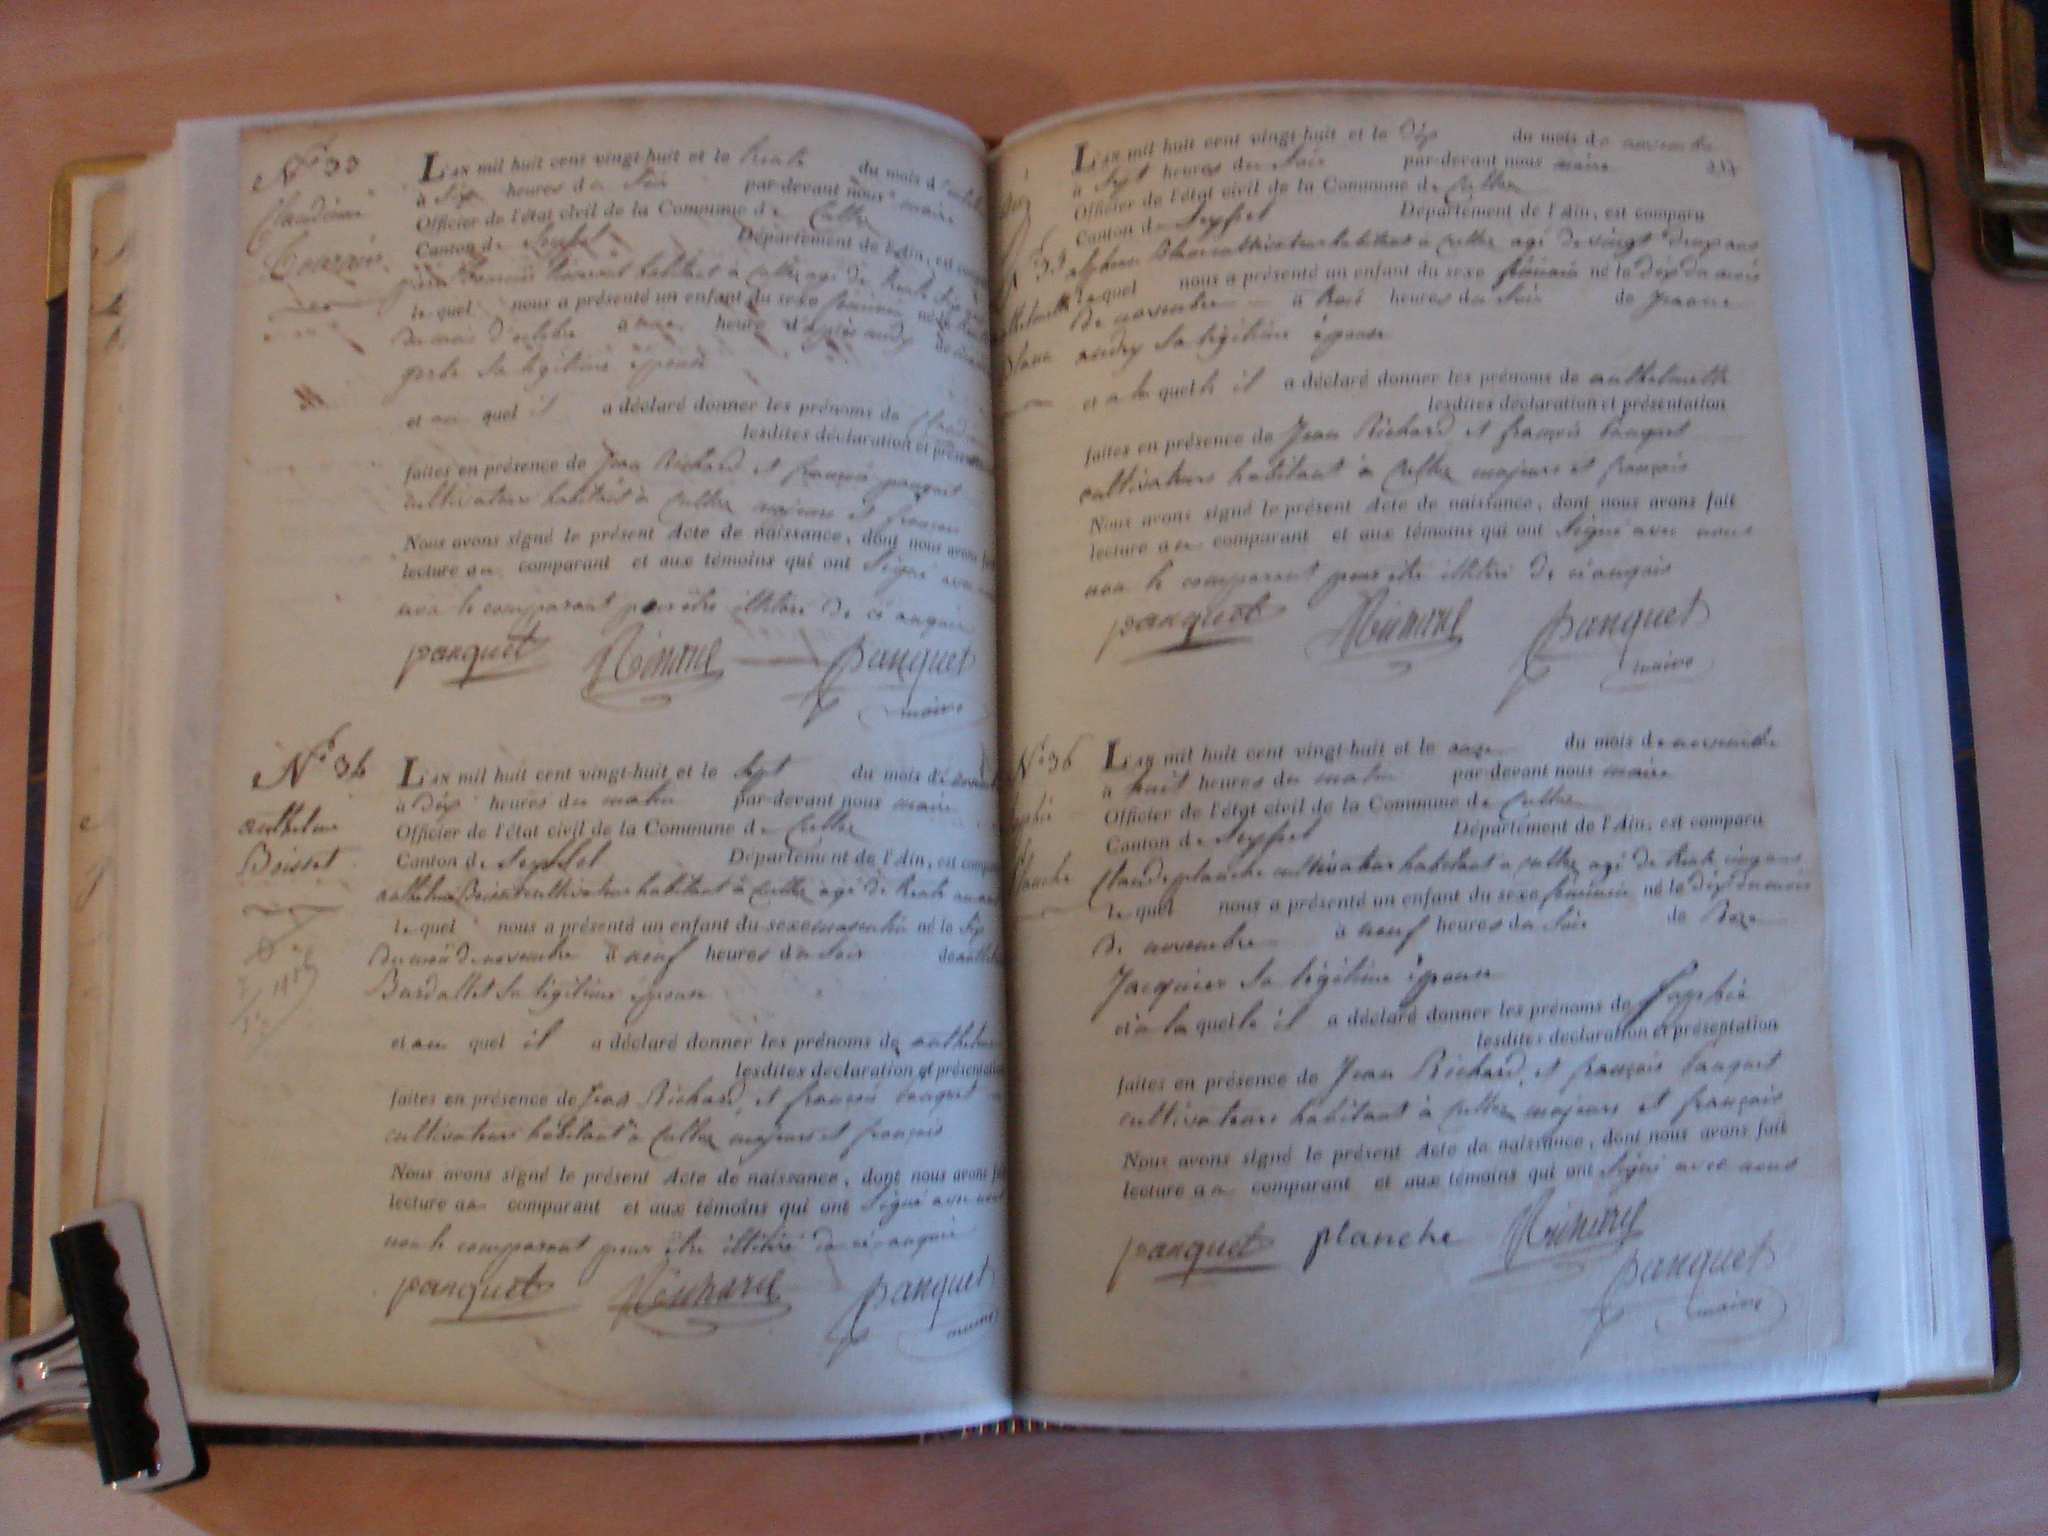 N° 33
L'an mil huit cent vingt-huit et le trente du mois d'octobre
à Six heures du Soir par-devant nous maire
Officier de l'état civil de la Commune de Culloz
Canton de Seyssel Département de l'Ain, est
habitant à Culloz agé de trente
le quel nous a présenté un enfant du sexe féminin né le
du mois d'octobre à heure d'après midy
Sa légitime épouse
et au quel il a déclaré donner les prénoms de
lesdites déclaration et présentation
faites en présence de Jean Richard et françois panquet
cultivateurs habitant à Culloz majeurs et françois
Nous avons signé le présent Acte de naissance, dont nous avons fait
lecture au comparant et aux témoins qui ont Signé avec
non le comparant pour être illitéré de ce enquis
panquet Richard panquet
maire
N° 34
anthelme
Boisset
L'an mil huit cent vingt-huit et le Sept du mois de novembre
à dix heures du matin par-devant nous maire
Officier de l'état civil de la Commune de Culloz
Canton de Seyssel Département de l'Ain, est comparu
anthelme Boisset cultivateur habitant à Culloz agé de trente
le quel nous a présenté un enfant du sexe masculin né le Six
du mois de novembre à neuf heures du Soir de
Bardallet Sa légitime épouse
et au quel il a déclaré donner les prénoms de anthelme
lesdites déclaration et présentation
faites en présence de Jean Richard, et françois panquet
cultivateurs habitant à Culloz majeurs et françois
Nous avons signé le présent Acte de naissance, dont nous avons fait
lecture au comparant et aux témoins qui ont Signé avec nous
non le comparant pour être illitéré de ce enquis
panquet Richard panquet
maire
L'an mil huit cent vingt-huit et le dix du mois de novembre
à Sept heures du Soir par-devant nous maire
Officier de l'état civil de la Commune de Culloz
Canton de Seyssel Département de l'Ain, est comparu
cultivateur habitant à Culloz agé de vingt ans
le quel nous a présenté un enfant du sexe féminin né le dix du mois
de novembre à heures du Soir de
Sa légitime épouse
et a la quelle il a déclaré donner les prénoms de anthelmette
lesdites déclaration et présentation
faites en présence de Jean Richard et françois panquet
cultivateurs habitant à Culloz majeurs et françois
Nous avons signé le présent Acte de naissance, dont nous avons fait
lecture au comparant et aux témoins qui ont Signé avec nous
non le comparant pour être illitéré de ce enquis
panquet Richard panquet
maire
N° 36
L'an mil huit cent vingt-huit et le onze du mois de novembre
à huit heures du matin par-devant nous maire
Officier de l'état civil de la Commune de Culloz
Canton de Seyssel Département de l'Ain, est comparu
Claude planche cultivateur habitant à Culloz agé de trente cinq ans
le quel nous a présenté un enfant du sexe féminin né le dix du mois
de novembre à neuf heures du Soir de Roze
Jacquier Sa légitime épouse
et a la quelle il a déclaré donner les prénoms de Sophie
lesdites déclaration et présentation
faites en présence de Jean Richard, et françois panquet
cultivateurs habitant à Culloz majeurs et françois
Nous avons signé le présent Acte de naissance, dont nous avons fait
lecture au comparant et aux témoins qui ont Signé avec nous
panquet planche Richard
panquet
maire